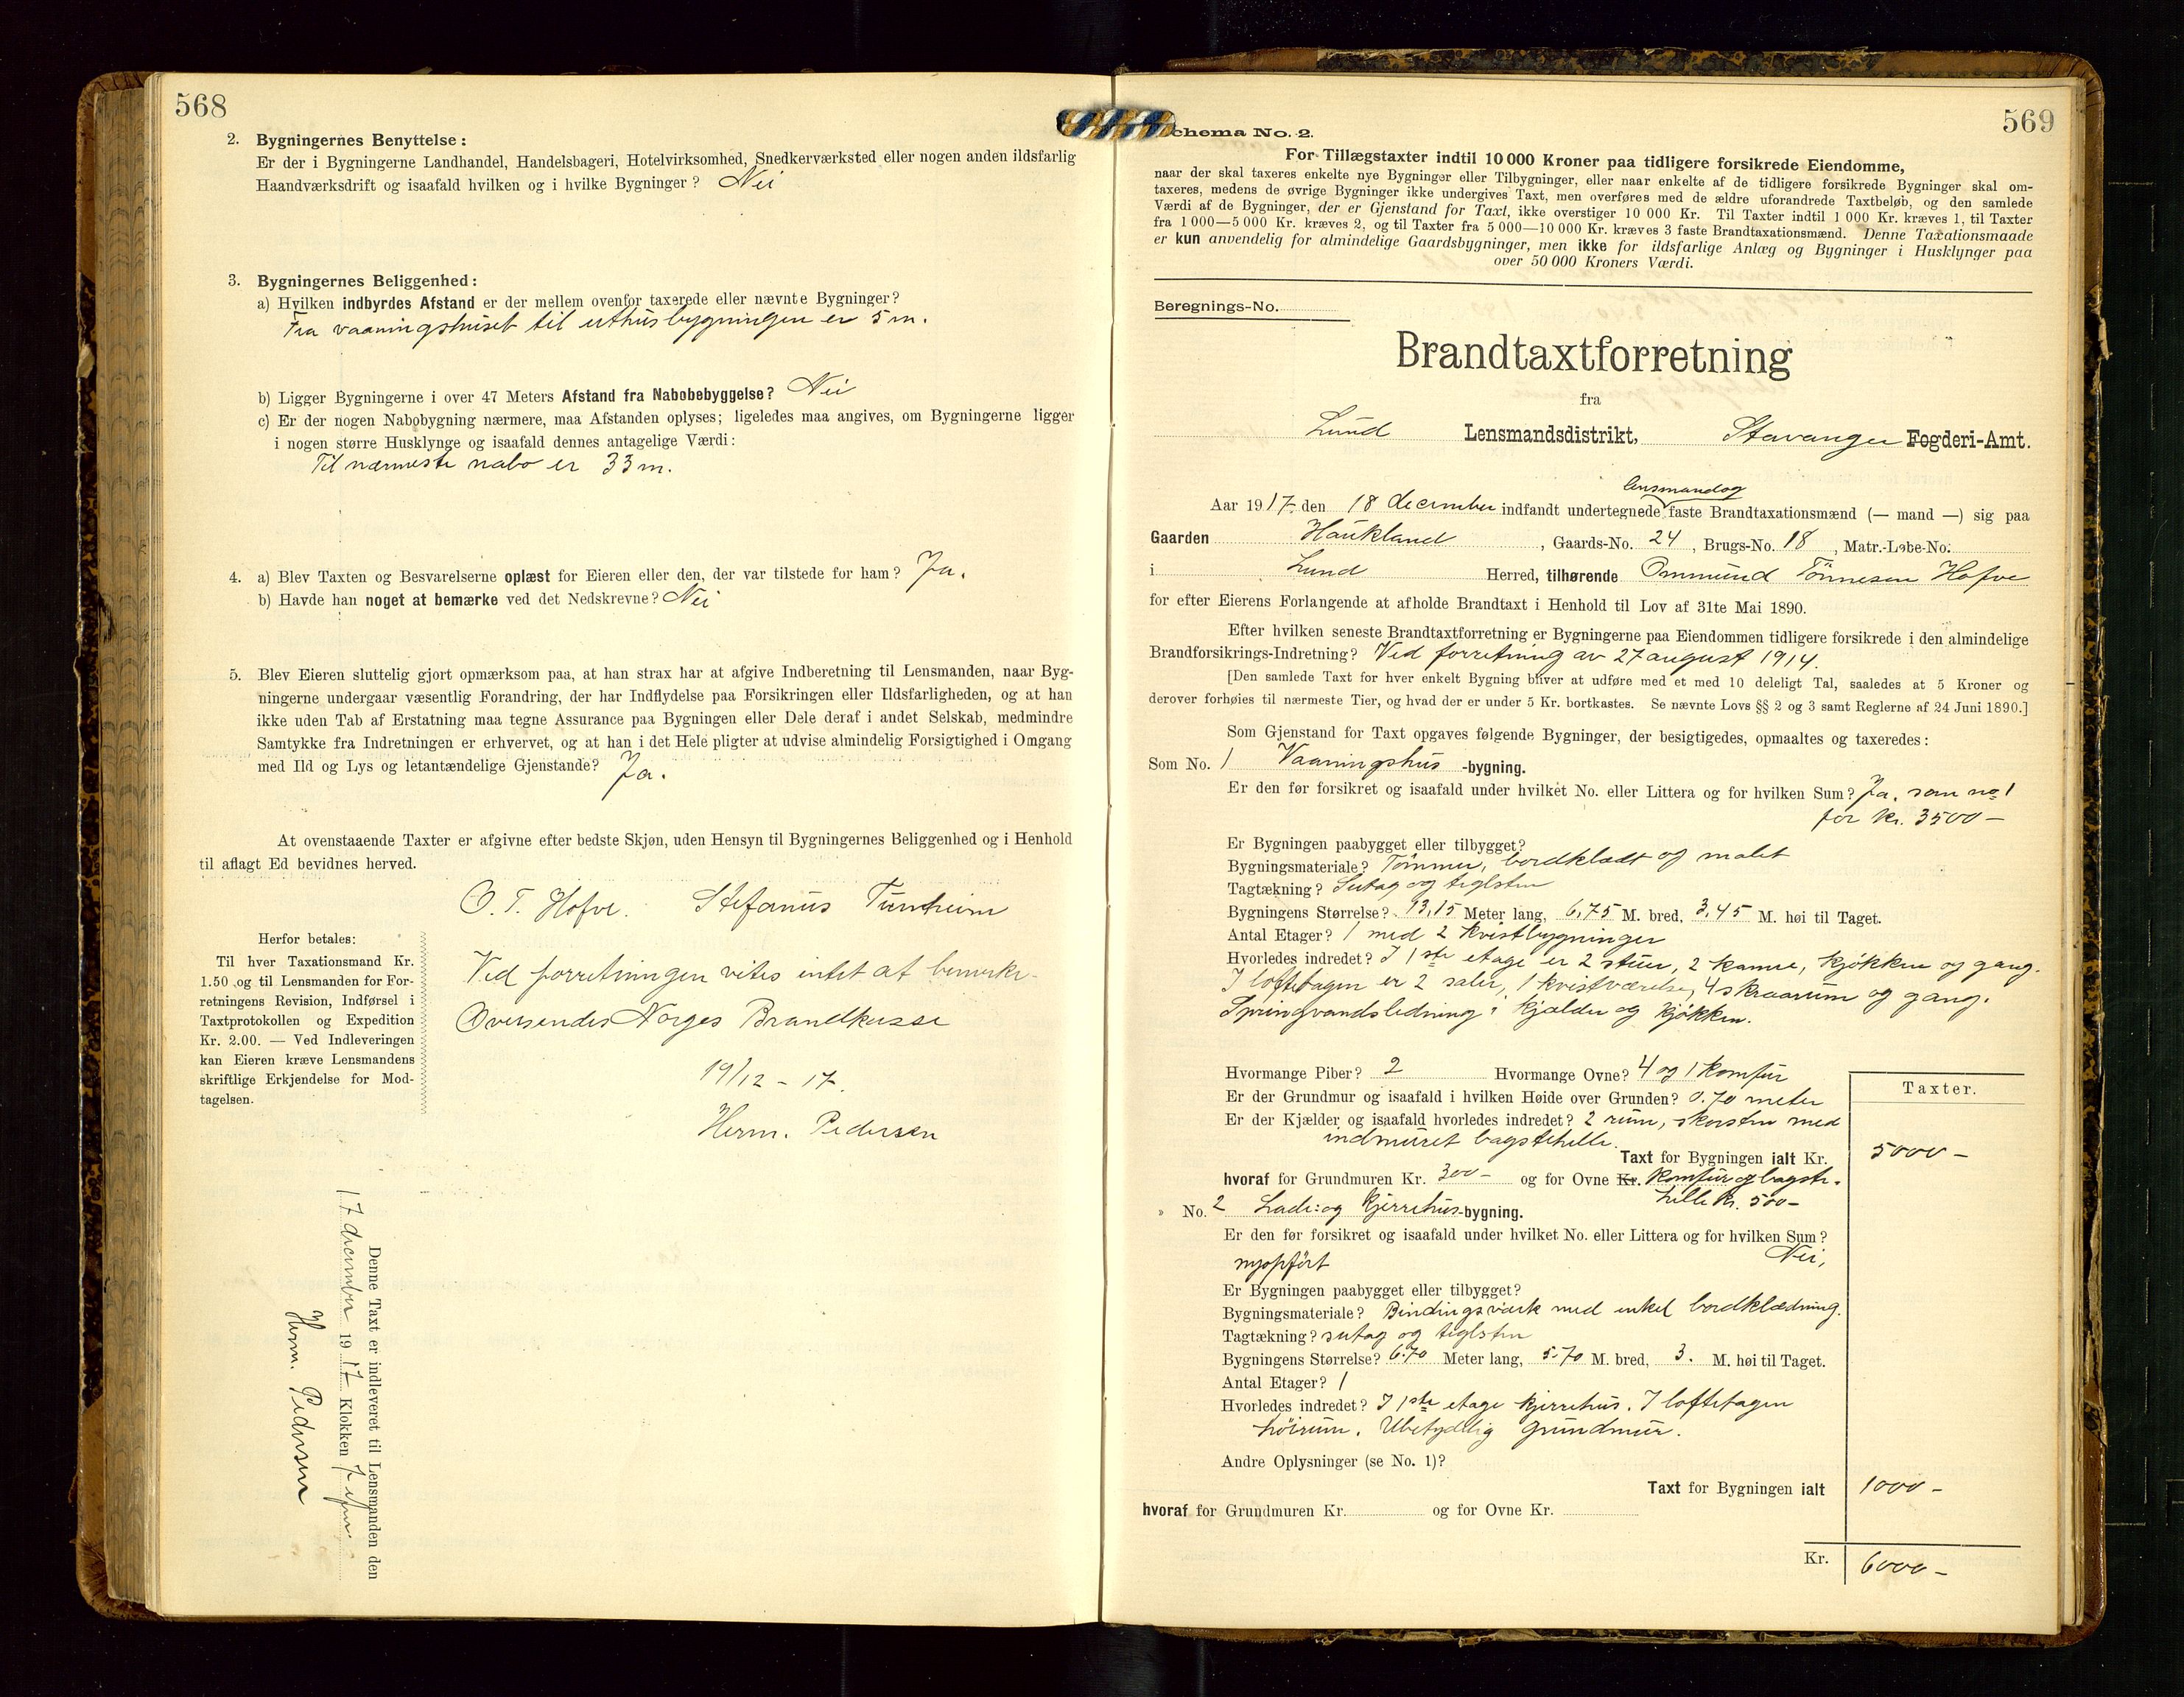 568
2. Bygningernes Benyttelse:
Er der i Bygningerne Landhandel, Handelsbageri, Hotelvirksomhed, Snedkerværksted eller nogen anden ildsfarlig
Haandværksdrift og isaafald hvilken og i hvilke Bygninger? Nei
3. Bygningernes Beliggenhed:
a) Hvilken indbyrdes Afstand er der mellem ovenfor taxerede eller nævnte Bygninger?
Fra vaaningshuset til uthusbygningen er 5 m.
b) Ligger Bygningerne i over 47 Meters Afstand fra Nabobebyggelse? Nei
c) Er der nogen Nabobygning nærmere, maa Afstanden oplyses; ligeledes maa angives, om Bygningerne ligger
i nogen større Husklynge og isaafald dennes antagelige Værdi:
Til nærmeste nabo er 33 m.
4. a) Blev Taxten og Besvarelserne oplæst for Eieren eller den, der var tilstede for ham? Ja.
b) Havde han noget at bemærke ved det Nedskrevne? Nei
5. Blev Eieren sluttelig gjort opmærksom paa, at han strax har at afgive Indberetning til Lensmanden, naar Byg-
ningerne undergaar væsentlig Forandring, der har Indflydelse paa Forsikringen eller Ildsfarligheden, og at han
ikke uden Tab af Erstatning maa tegne Assurance paa Bygningen eller Dele deraf i andet Selskab, medmindre
Samtykke fra Indretningen er erhvervet, og at han i det Hele pligter at udvise almindelig Forsigtighed i Omgang
med Ild og Lys og letantændelige Gjenstande? Ja.
At ovenstaaende Taxter er afgivne efter bedste Skjøn, uden Hensyn til Bygningernes Beliggenhed og i Henhold
til aflagt Ed bevidnes herved.
O. T. Hofve. Stefanus Tunheim
Herfor betales:
Til hver Taxationsmand Kr.
1.50 og til Lensmanden for For-
retningens Revision, Indførsel i
Taxtprotokollen og Expedition
Kr. 2.00. — Ved Indleveringen
kan Eieren kræve Lensmandens
skriftlige Erkjendelse for Mod-
tagelsen.
Ved forretningen vites intet at bemerke-
Oversendes Norges Brandkasse
19/12 - 17.
Herm. Pedersen
Denne Taxt er indleveret til Lensmanden den
17 december 1917 Klokken 7 efm.
Herm. Pedersen
569
chema No. 2.
For Tillægstaxter indtil 10 000 Kroner paa tidligere forsikrede Eiendomme,
naar der skal taxeres enkelte nye Bygninger eller Tilbygninger, eller naar enkelte af de tidligere forsikrede Bygninger skal om-
taxeres, medens de øvrige Bygninger ikke undergives Taxt, men overføres med de ældre uforandrede Taxtbeløb, og den samlede
Værdi af de Bygninger, der er Gjenstand for Taxt, ikke overstiger 10 000 Kr. Til Taxter indtil 1 000 Kr. kræves 1, til Taxter
fra 1 000—5 000 Kr. kræves 2, og til Taxter fra 5 000—10 000 Kr. kræves 3 faste Brandtaxationsmænd. Denne Taxationsmaade
er kun anvendelig for almindelige Gaardsbygninger, men ikke for ildsfarlige Anlæg og Bygninger i Husklynger paa
over 50 000 Kroners Værdi.
Beregnings-No.
Brandtaxtforretning
fra
Lund Lensmandsdistrikt, Stavanger Fogderi-Amt.
lensmand og
Aar 1917 den 18 december indfandt undertegnede faste Brandtaxationsmænd (— mand —) sig paa
Gaarden Haukland, Gaards-No. 24, Brugs-No. 18, Matr.-Løbe-No.
i Lund Herred, tilhørende Ommund Tönnesen Hofve
for efter Eierens Forlangende at afholde Brandtaxt i Henhold til Lov af 31te Mai 1890.
Efter hvilken seneste Brandtaxtforretning er Bygningerne paa Eiendommen tidligere forsikrede i den almindelige
Brandforsikrings-Indretning? Ved forretning av 27 august 1914.
[Den samlede Taxt for hver enkelt Bygning bliver at udføre med et med 10 deleligt Tal, saaledes at 5 Kroner og
derover forhøies til nærmeste Tier, og hvad der er under 5 Kr. bortkastes. Se nævnte Lovs §§ 2 og 3 samt Reglerne af 24 Juni 1890.]
Som Gjenstand for Taxt opgaves følgende Bygninger, der besigtigedes, opmaaltes og taxeredes:
Som No. 1 Vaaningshus -bygning.
Er den før forsikret og isaafald under hvilket No. eller Littera og for hvilken Sum? Ja, som no 1
for kr. 3500 —
Er Bygningen paabygget eller tilbygget?
Bygningsmateriale? Tömmer, bordklædt og malet
Tagtækning? Sutag og teglsten
Bygningens Størrelse? 13,15 Meter lang, 6,75 M. bred, 3,45 M. høi til Taget.
Antal Etager? 1 med 2 kvistbygninger
Hvorledes indredet? I 1ste etage er 2 stuer, 2 kamre, kjøkken og gang.
I loftetagen er 2 saler, 1 kvistværelse, 4 skraarum og gang.
Springvandsledning i kjælder og kjøkken.
Hvormange Piber? 2 Hvormange Ovne? 4 og 1 komfur
Taxter.
Er der Grundmur og isaafald i hvilken Høide over Grunden? 0.70 meter
Er der Kjælder og isaafald hvorledes indredet? 2 rum, skorsten med
indmuret bagstehelle.
Taxt for Bygningen ialt Kr. 5000 —
hvoraf for Grundmuren Kr. 300 — og for Ovne Kr. komfur og bagste-
helle kr. 500 —
» No. 2 Lade: og kjerrehus -bygning.
Er den før forsikret og isaafald under hvilket No. eller Littera og for hvilken Sum?
nyopført Nei,
Er Bygningen paabygget eller tilbygget?
Bygningsmateriale? Bindingsverk med enkel bordklædning.
Tagtækning? sutag og teglsten
Bygningens Størrelse? 6.70 Meter lang, 5.70 M. bred, 3. M. høi til Taget.
Antal Etager? 1
Hvorledes indredet? I 1ste etage kjerrehus. I loftetagen
høirum. Ubetydelig grundmur.
Andre Oplysninger (se No. 1)?
Taxt for Bygningen ialt 1000 —
hvoraf for Grundmuren Kr. og for Ovne Kr.
Kr. 6000 —